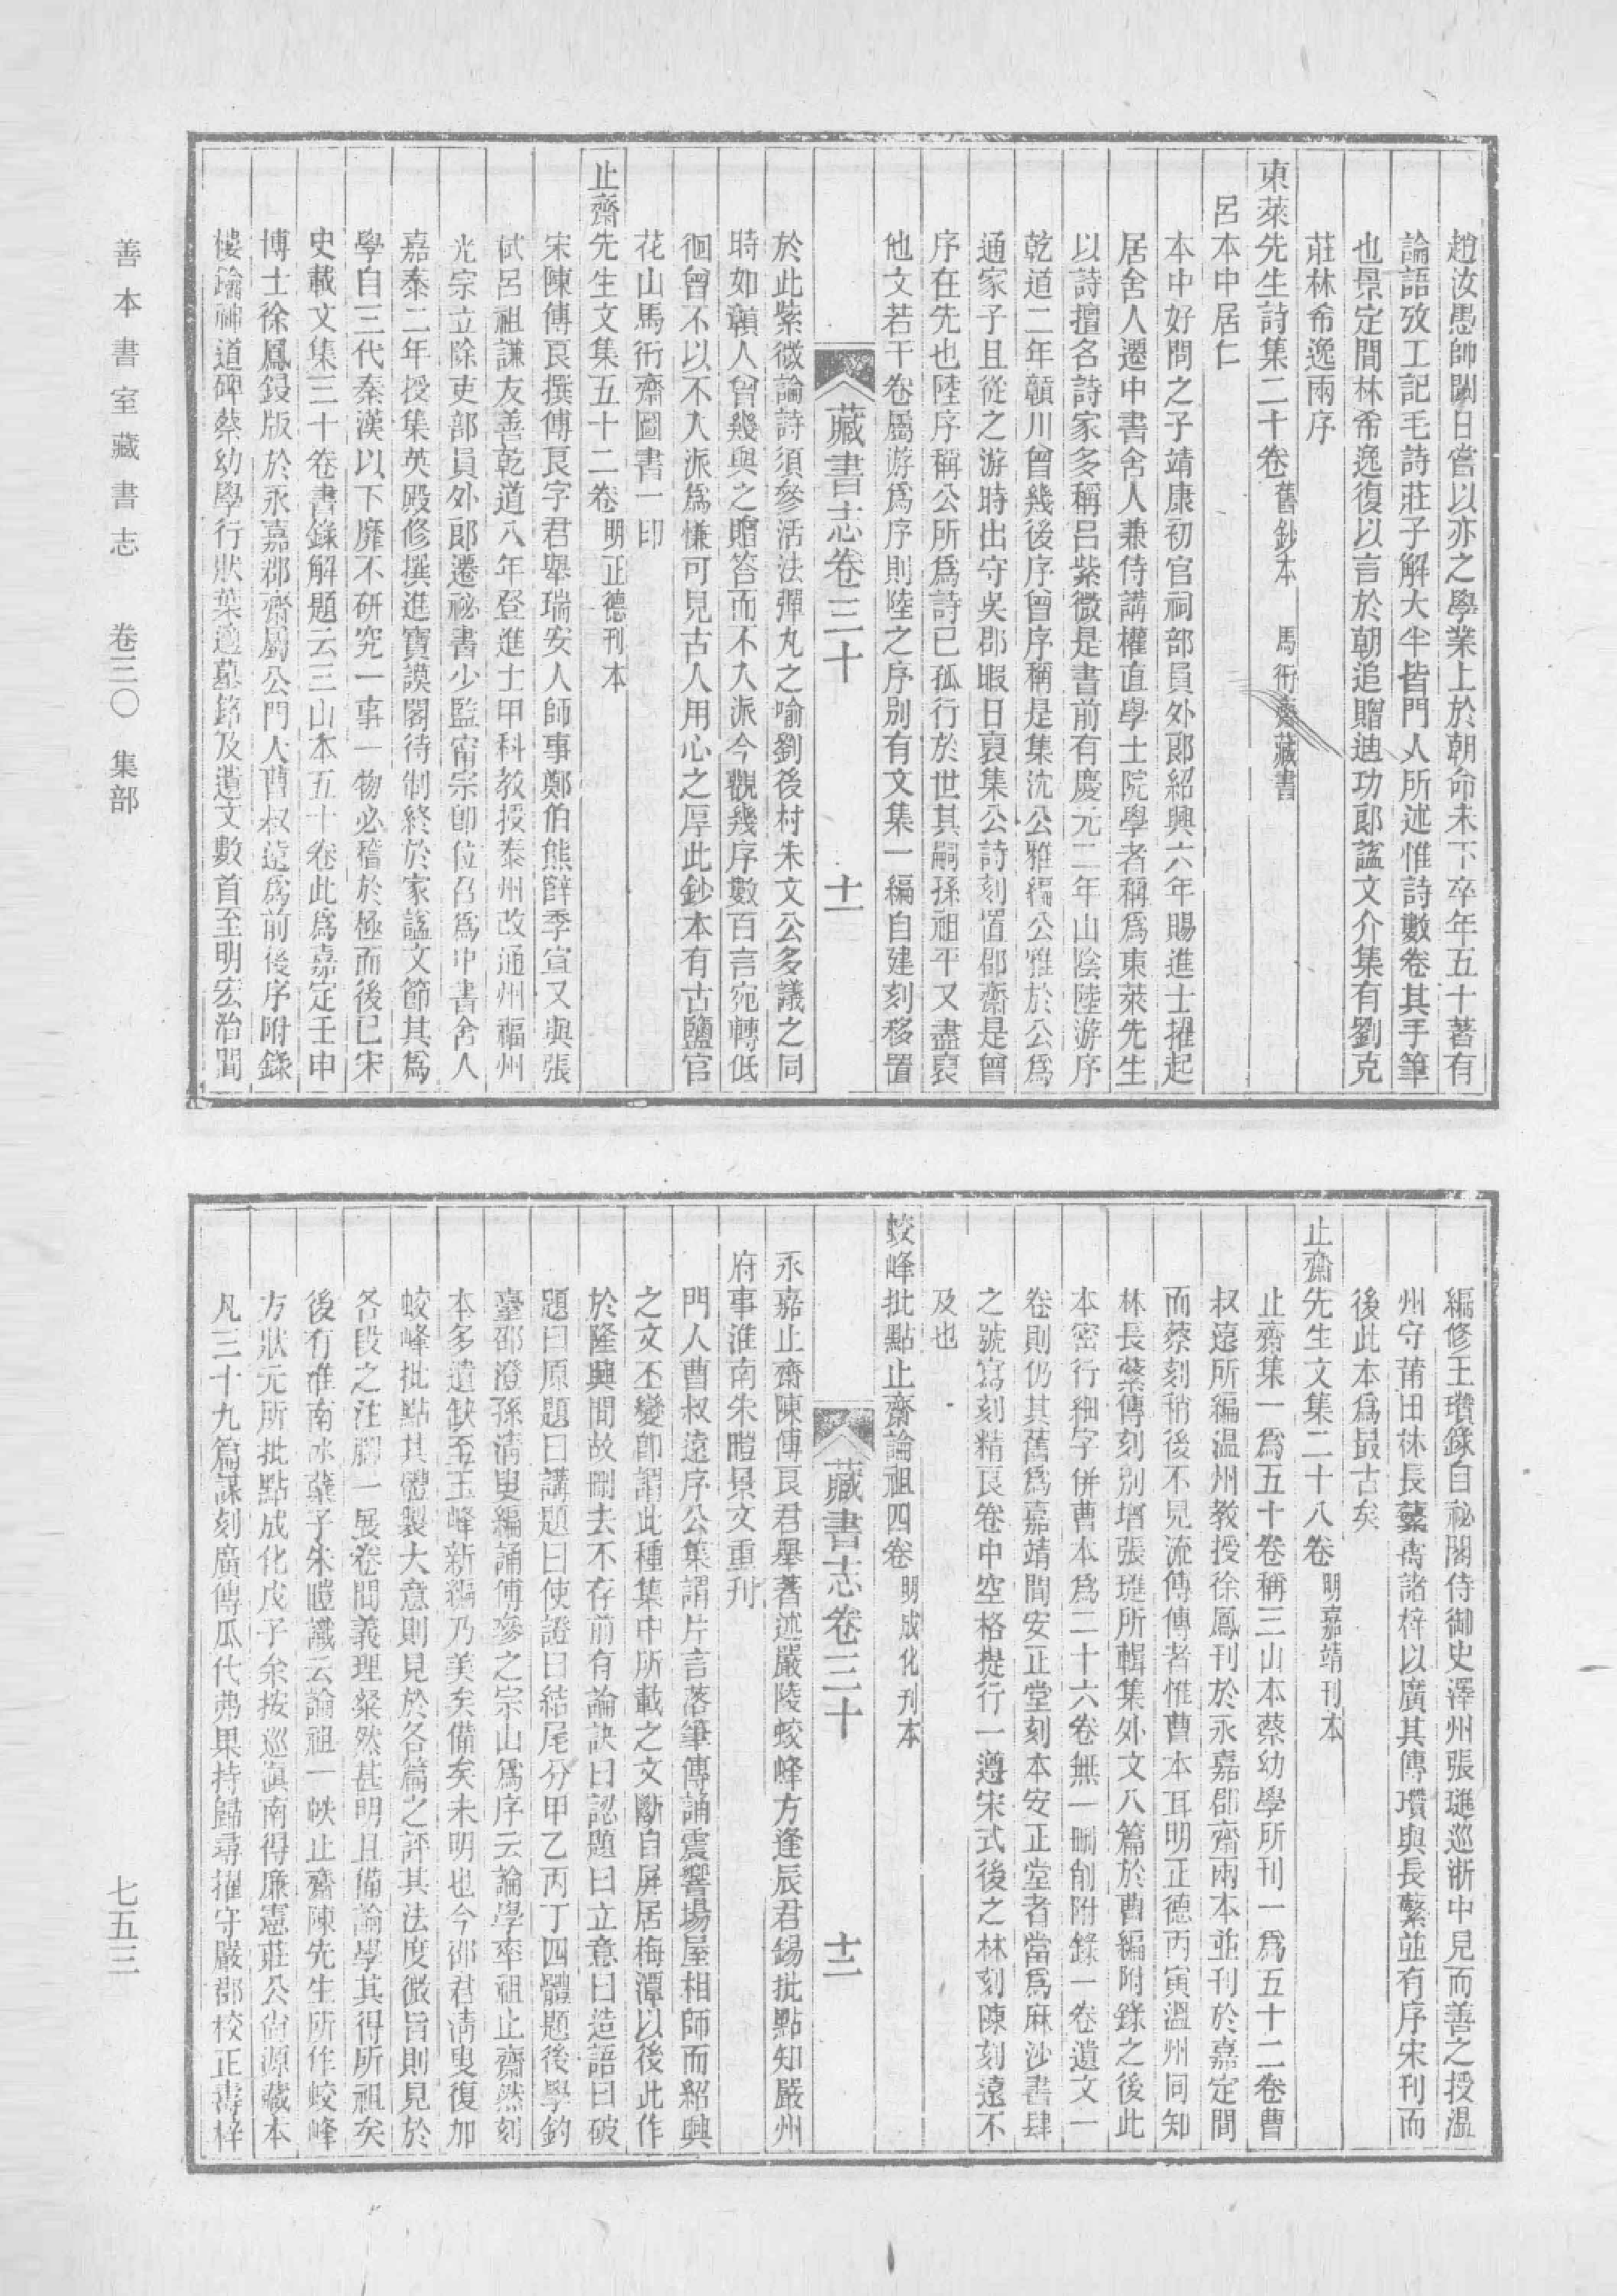 趙汝愚帥閩日嘗以亦之學業上於朝命未下卒年五十著有
論語攷工記毛詩莊子解大半皆門人所述惟詩數卷其手筆
也景定間林希逸復以言於朝追贈迪功郎諡文介集有劉克
莊林希逸兩序
東萊先生詩集二十卷 舊鈔本 馬衎齋藏書
呂本中居仁
本中好問之子靖康初官祠部員外郎紹興六年賜進士擢起
居舍人遷中書舍人兼侍講權直學士院學者稱為東萊先生
以詩擅名詩家多稱呂紫微是書前有慶元二年山陰陸游序
乾道二年贛川曾幾後序曾序稱是集沈公雅編公雅於公為
通家子且從之游時出守吳郡暇日裒集公詩刻置郡齋是曾
序在先也陸序稱公所為詩已孤行於世其嗣孫祖平又盡裒
他文若干卷屬游為序則陸之序別有文集一編自建刻移置
藏書志卷三十 十一
於此紫微論詩須參活法彈丸之喻劉後村朱文公多議之同
時如贛人曾幾與之贈答而不入派今觀幾序數百言宛轉低
徊曾不以不入派為慊可見古人用心之厚此鈔本有古鹽官
花山馬衎齋圖書一印
止齋先生文集五十二卷 明正德刊本
宋陳傅良撰傅良字君舉瑞安人師事鄭伯熊薛季宣又與張
栻呂祖謙友善乾道八年登進士甲科教授泰州改通州福州
光宗立除吏部員外郎遷祕書少監甯宗卽位召為中書舍人
嘉泰二年授集英殿修撰進寶謨閣待制終於家諡文節其為
學自三代秦漢以下靡不研究一事一物必稽於極而後已宋
史載文集三十卷書錄解題云三山本五十卷此為嘉定壬申
博士徐鳳鋟版於永嘉郡齋屬公門人曹叔遠為前後序附錄
樓鑰神道碑蔡幼學行狀葉適墓銘及遺文數首至明宏治間
編修王瓚錄自祕閣侍御史澤州張璡巡浙中見而善之授溫
州守莆田林長蘩鬻諸梓以廣其傳瓚與長繁並有序宋刊而
後此本為最古矣
止齋先生文集二十八卷 明嘉靖刊本
止齋集一為五十卷稱三山本蔡幼學所刊一為五十二卷曹
叔遠所編溫州教授徐鳳刊於永嘉郡齋兩本並刊於嘉定間
而蔡刻稍後不見流傳傳者惟曹本耳明正德丙寅溫州同知
林長蘩傳刻別增張璡所輯集外文八篇於曹編附錄之後此
本密行細字併曹本為二十六卷無一刪削附錄一卷遺文一
卷則仍其舊為嘉靖間安正堂刻本安正堂者當為麻沙書肆
之號寫刻精良卷中空格提行一遵宋式後之林刻陳刻遠不
及也
蛟峰批點止齋論祖四卷 明成化刊本
藏書志卷三十 十二
永嘉止齋陳傅良君舉著述嚴陵蛟峰方逢辰君錫批點知嚴州
府事淮南朱暟景文重刊
門人曹叔遠序公集謂片言落筆傳誦震響場屋相師而紹興
之文丕變卽謂此種集中所載之文斷自屏居梅潭以後此作
於隆興間故刪去不存前有論訣曰認題曰立意曰造語曰破
題曰原題曰講題曰使證曰結尾分甲乙丙丁四體題後學釣
臺邵澄孫淸叟編誦傅參之宗山為序云論學率祖止齋然刻
本多遺缺至玉峰新編乃美矣備矣未明也今邵君淸叟復加
蛟峰批點其體製大意則見於各篇之評其法度微旨則見於
各段之注腳一展卷間義理粲然甚明且備論學其得所祖矣
後有淮南冰蘗子朱暟識云論祖一帙止齋陳先生所作蛟峰
方狀元所批點成化戊子余按巡滇南得廉憲莊公尙源藏本
凡三十九篇謀刻廣傳瓜代弗果持歸尋擢守嚴郡校正壽梓
善本書室藏書志 卷三〇 集部
七五三